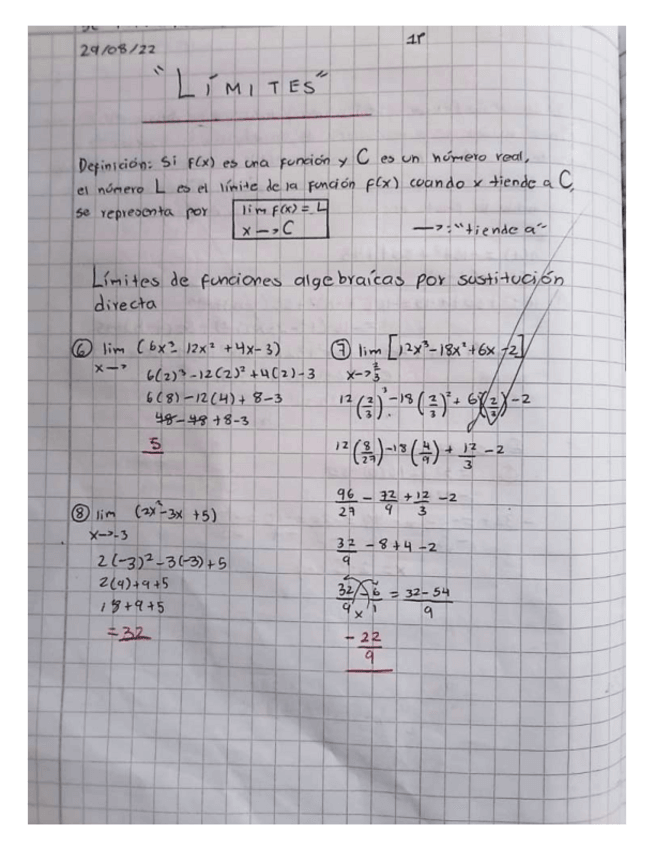 29/08/22
1P
"LÍMITES"
Definición: Si f(x) es una función y C es un número real,
el número L es el límite de la función f(x) cuando x tiende a C,
se representa por lim f(x) = L
x → C
→: "tiende a"
Límites de funciones algebraícas por sustitución
directa
⑥ lim (6x³ - 12x² + 4x - 3)
x →
6(2)³ - 12(2)² + 4(2) - 3
6(8) - 12(4) + 8 - 3
48 - 48 + 8 - 3
5
⑦ lim [12x³ - 18x² + 6x - 2]
x → 2/3
12(2/3)³ - 18(2/3)² + 6(2/3) - 2
12(8/27) - 18(4/9) + 12/3 - 2
96/27 - 72/9 + 12/3 - 2
32/9 - 8 + 4 - 2
32/9 - 6/1 = 32-54/9
- 22/9
⑧ lim (2x² - 3x + 5)
x → -3
2(-3)² - 3(-3) + 5
2(9) + 9 + 5
18 + 9 + 5
= 32